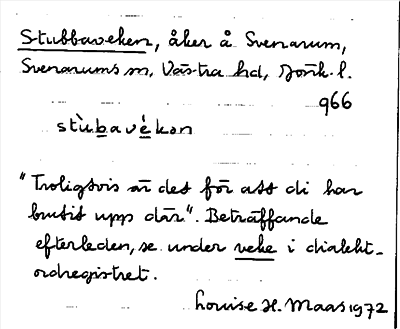 Stubbaveken, åker å Svenarum,
Svenarums sn, Västra hd, Jönk. l.
966
stùbavè̩kən
"Troligtvis är det för att di har
brutit upp där". Beträffande
efterleden, se under veke i dialekt-
ordregistret.
Louise H. Maas 1972